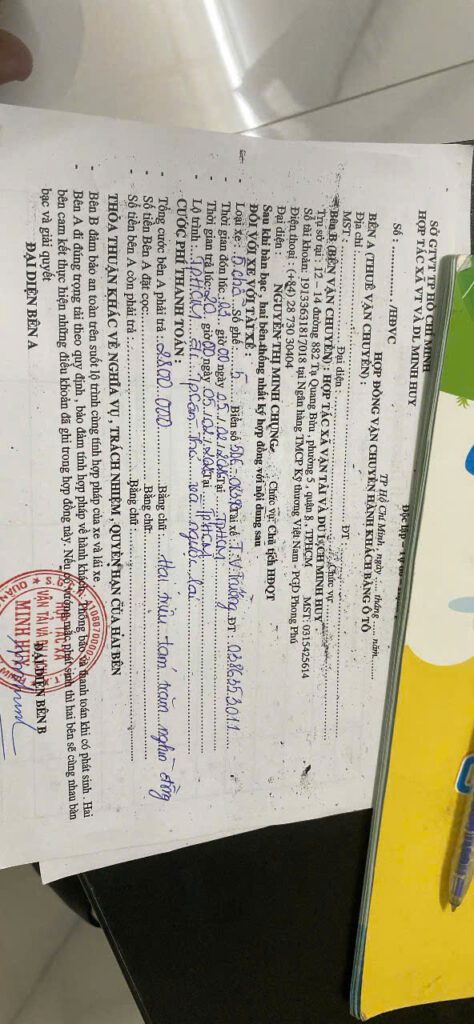 SỞ GTVT TP HỒ CHÍ MINH
HỢP TÁC XÃ VT VÀ DL MINH HUY
Số : ............/HĐVC
TP Hồ Chí Minh, ngày ..... tháng ..... năm......
HỢP ĐỒNG VẬN CHUYỂN HÀNH KHÁCH BẰNG Ô TÔ
BÊN A (THUÊ VẬN CHUYỂN) :
Địa chỉ : ĐT
MST : Đại diện : Chức vụ
Bên B (BÊN VẬN CHUYỂN) : HỢP TÁC XÃ VẬN TẢI VÀ DU LỊCH MINH HUY
Trụ sở tại : 12 – 14 đường 882 Tạ Quang Bửu , phường 5 , quận 8 , TPHCM MST: 0315425614
Số tài khoản: 19133631817018 tại Ngân hàng TMCP Kỹ thương Việt Nam - PGD Phong Phú
Điện thoại : (+84) 28 730 30404
Đại diện : NGUYỄN THỊ MINH CHUNG Chức vụ: Chủ tịch HĐQT
Sau khi bàn bạc , hai bên thống nhất ký hợp đồng với nội dung sau
ĐỐI VỚI XE VỚI TÀI XẾ :
- Loại xe : 5 chỗ Số ghế : 5 Biển số Tài xế T.V Trường ĐT: 0386553011
- Thời gian đón lúc giờ 00 ngày 05/02/2025 Tại TPHCM
- Thời gian trả lúc 20 giờ 00 ngày 05/02/2025 Tại TPHCM
- Lộ trình : TPHCM đi Tp Cần Thơ và ngược lại
CƯỚC PHÍ THANH TOÁN :
- Tổng cước bên A phải trả : 2.800.000 Bằng chữ : Hai triệu tám trăm nghìn đồng
- Số tiền Bên A đặt cọc: Bằng chữ:
- Số tiền bên A còn phải trả : Bằng chữ:
THỎA THUẬN KHÁC VỀ NGHĨA VỤ , TRÁCH NHIỆM , QUYỀN HẠN CỦA HAI BÊN
- Bên B đảm bảo an toàn trên suốt lộ trình cùng tính hợp pháp của xe và lái xe.
- Bên A đi đúng trọng tải theo quy định , bảo đảm tính hợp pháp về hành khách. Thông báo và thanh toán khi có phát sinh . Hai
bên cam kết thực hiện những điều khoản đã ghi trong hợp đồng này . Nếu có vướng mắc phát sinh thì hai bên sẽ cùng nhau bàn
bạc và giải quyết
ĐẠI DIỆN BÊN A ĐẠI DIỆN BÊN B
VẬN TẢI VÀ DU LỊCH
MINH HUY